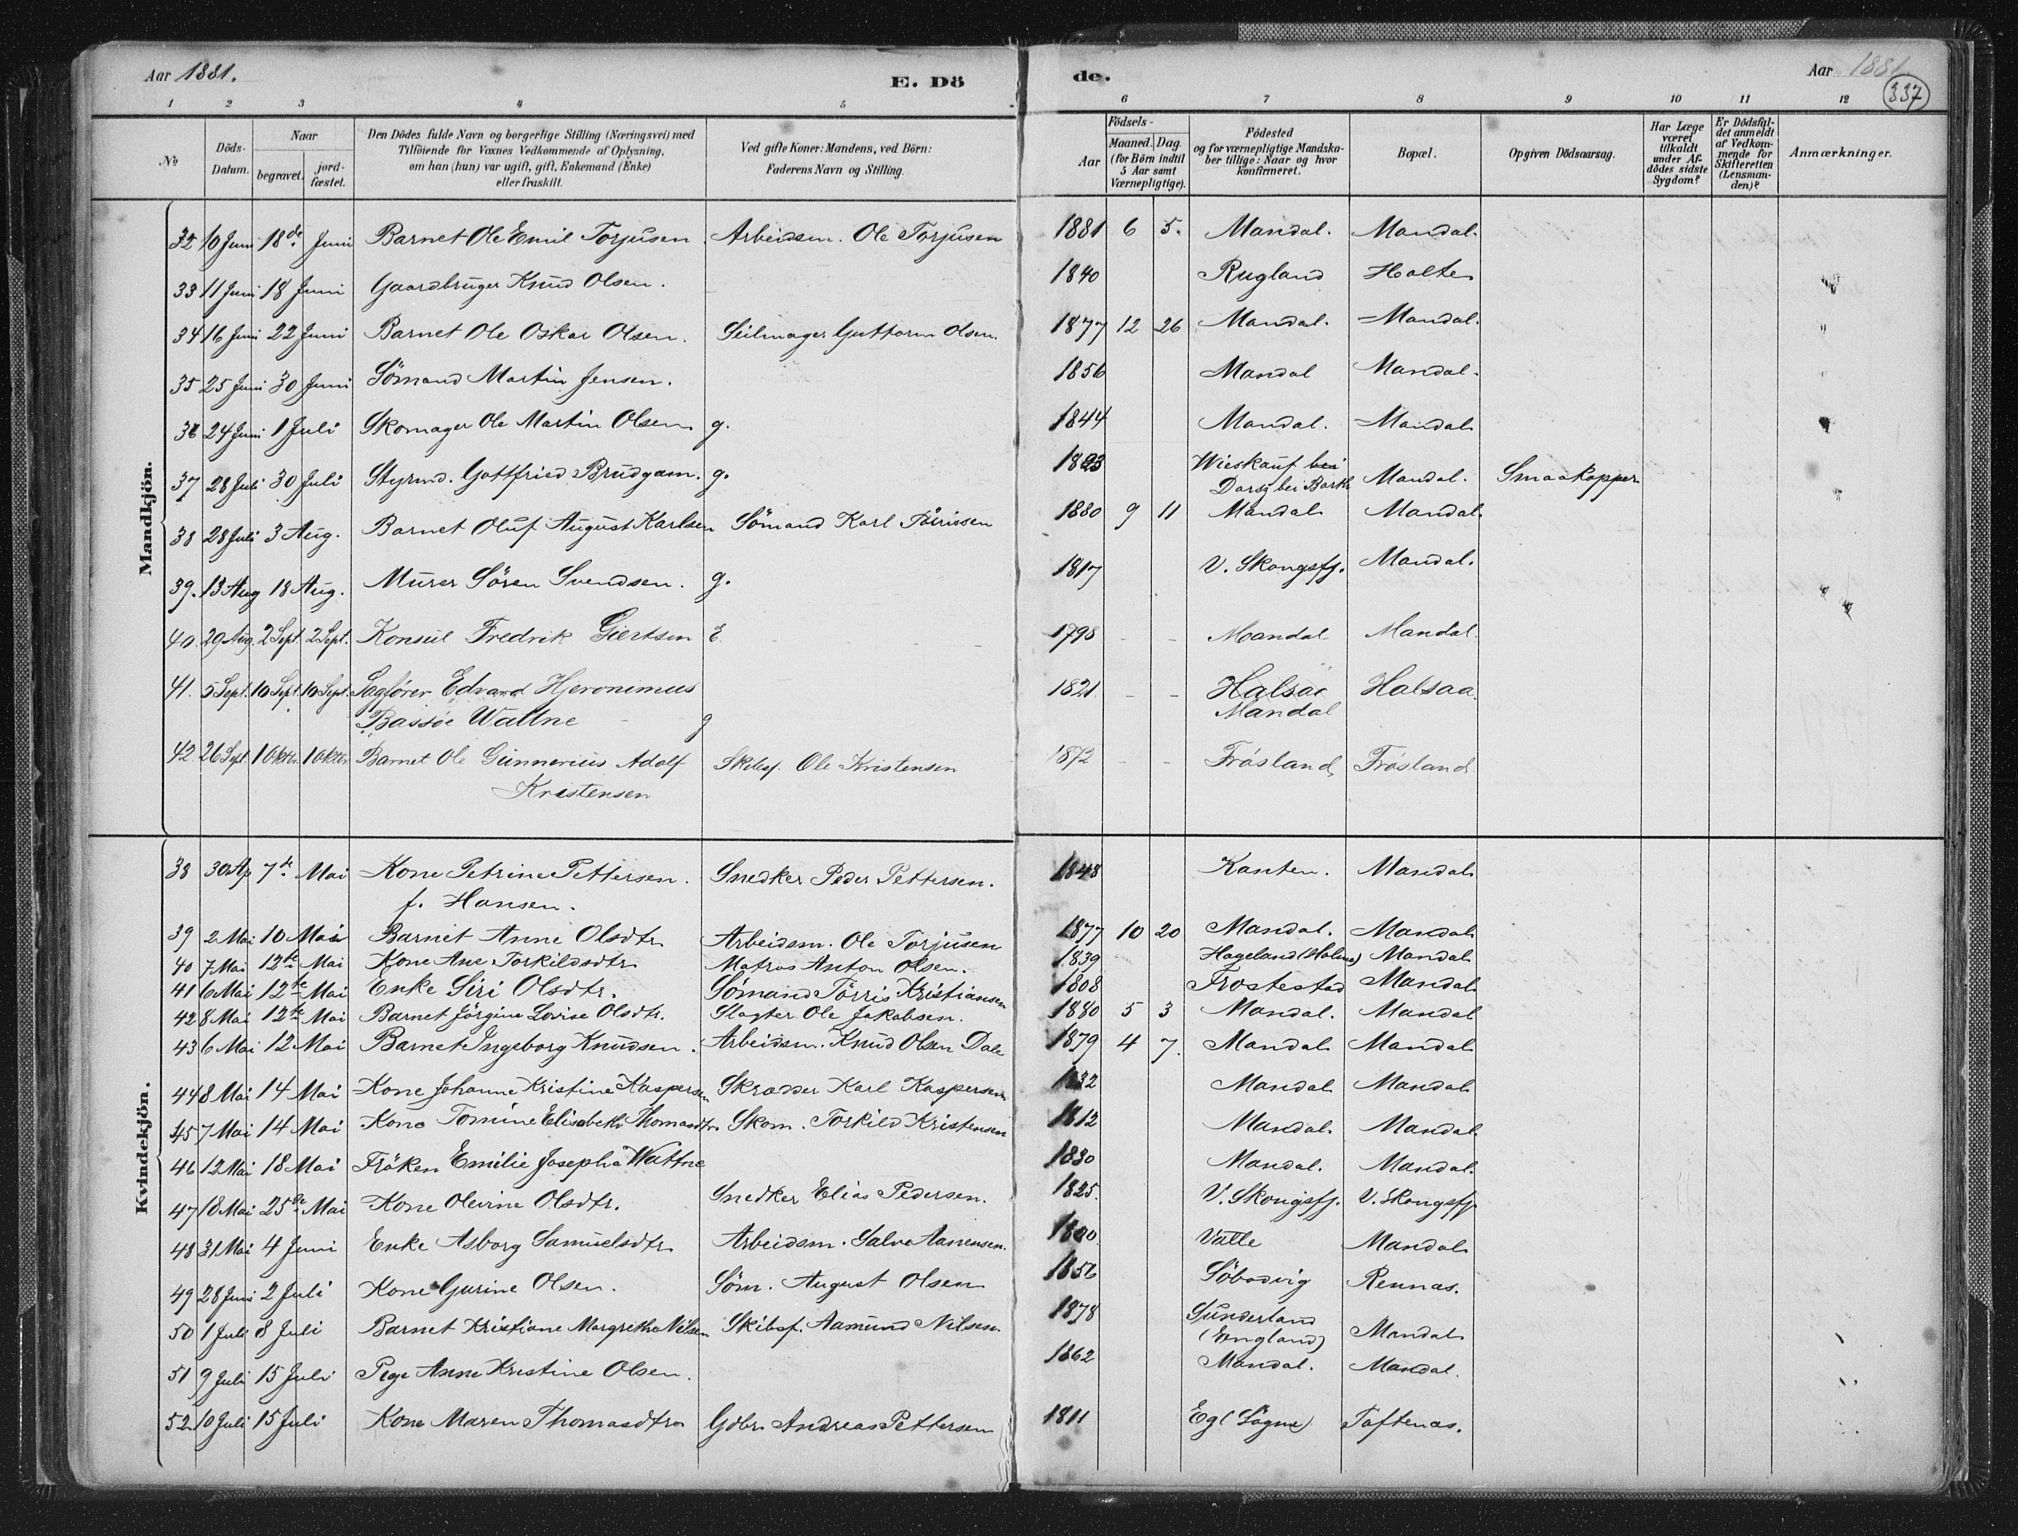 Aar 1881. E. Dö de. Aar 1881
337
1 2 3 4 5 6 7 8 9 10 11 12
No Döds-Datum. Naar begravet. jord-fæstet. Den Dödes fulde Navn og borgerlige Stilling (Næringsvei) med Tilföiende for Voxnes Vedkommende af Oplysning, om han (hun) var ugift, gift, Enkemand (Enke) eller fraskilt. Ved gifte Koner: Mandens, ved Börn: Faderens Navn og Stilling. Födsels- Aar Maaned. Dag. (for Börn indtil 5 Aar samt Værnepligtige). Födested og for værnepligtige Mandskaber tillige: Naar og hvor konfirmeret. Bopæl. Opgiven Dödsaarsag. Har Læge været tilkaldt under Afdödes sidste Sygdom? Er Dödsfaldet anmeldt af Vedkommende for Skifteretten (Lensmanden)? Anmærkninger.
Mandkjön.
32 10 Juni 18de Juni Barnet Ole Emil Torjusen. Arbeidsm. Ole Torjusen 1881 6 5. Mandal. Mandal.
33 11 Juni 18 Juni Gaardbruger Knud Olsen. 1840 Rugland Holte
34 16 Juni 22 Juni Barnet Ole Oskar Olsen. Seilmager Guttorm Olsen. 1877 12 26 Mandal. Mandal.
35 25 Juni 30 Juni Sömand Martin Jensen. 1856 Mandal Mandal.
36 24 Juni 1 Juli Skomager Ole Martin Olsen g. 1844 Mandal. Mandal
37 28 Juli 30 Juli Styrmd. Gottfried Brudgam. g. 1823 Wieskauf bei Darsz bei Barth Mandal. Smaakopper
38 28 Juli 3 Aug. Barnet Oluf August Karlsen Sömand Karl 1880 9 11 Mandal Mandal.
39. 13 Aug 18 Aug. Murer Sören Svendsen. g. 1817 V. Skongsfj. Mandal.
40. 29 Aug. 2 Sept. 2 Sept. Konsul Fredrik Giertsen E. 1798 - - Mandal Mandal.
41. 5 Sept. 10 Sept. 10 Sept. Sagförer Edvard Hjeronimus Bassöe Wattne g 1821 - - Halsaa Mandal Halsaa.
42. 26 Sept. 1 Oktbr. 1 Oktbr. Barnet Ole Gunnerius Adolf Kristensen Skibsf. Ole Kristensen 1872 - - Frösland Frösland
Kvindekjön.
38 30 Ap 7de Mai Kone Petrine Pettersen. f. Hansen. Snedker Peder Pettersen. 1848 Kanten. Mandal
39 2 Mai 10 Mai Barnet Anne Olsdtr Arbeidsm. Ole Torjusen 1877 10 20 Mandal. Mandal
40 7 Mai 12te Mai Kone Ane Torkildsdtr Matros Anton Olsen. 1839 Hageland (Holme) Mandal
41 6 Mai 12te Mai Enke Siri Olsdtr. Sömand Törris Kristiansen 1808 Frostestad Mandal
42 8 Mai 12te Mai Barnet Jörgine Lovise Olsdtr. Slagter Ole Jakobsen. 1880 5 3 Mandal. Mandal
43 6 Mai 12 Mai Barnet Ingeborg Knudsen. Arbeidsm. Knud Olsen Dale 1879 4 7. Mandal Mandal
44 8 Mai 14 Mai Kone Johanne Kristine Kaspersen Skrædder Karl Kaspersen 1832 Mandal Mandal
45 7 Mai 14 Mai Kone Tomine Elisabeth Thomasdtr Skom. Torkild Kristensen 1812 Mandal. Mandal
46 12 Mai 18 Mai Fröken Emilie Josepha Wattne 1830 Mandal. Mandal.
47 18 Mai 25de Mai Kone Olevine Olsdtr. Snedker Elias Pedersen. 1825. V. Skongsfj. V. Skongsfj.
48 31 Mai 4 Juni Enke Asborg Samuelsdtr Arbeidsm. Salve Aanensen. 1800 Valle Mandal
49 28 Juni 2 Juli Kone Gurine Olsen. Söm. August Olsen 1856 Söbodvig Rennas.
50 1 Juli 8 Juli Barnet Kristiane Margrethe Nilsen Skibsf. Aamund Nilsen. 1878 Sunderland (England) Mandal
51 9 Juli 15 Juli Pige Anne Kristine Olsen. 1862 Mandal. Mandal.
52 10 Juli 15 Juli Kone Maren Thomasdtr Gdbr. Andreas Pettersen 1811 Eg (Sögne) Toftenas.